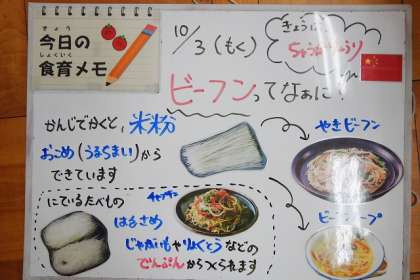 きょう
今日の
しょくいく
食育メモ
10/3(もく)
きょうは、
ちゅうかりょうり
ビーフンってなぁに?
かんじでかくと、米粉
おこめ(うるちまい)から
できています
やきビーフン
ビーフンスープ
にているたべもの
チャプチェ
はるさめ
じゃがいもやりょくとうなどの
でんぷんからつくられます